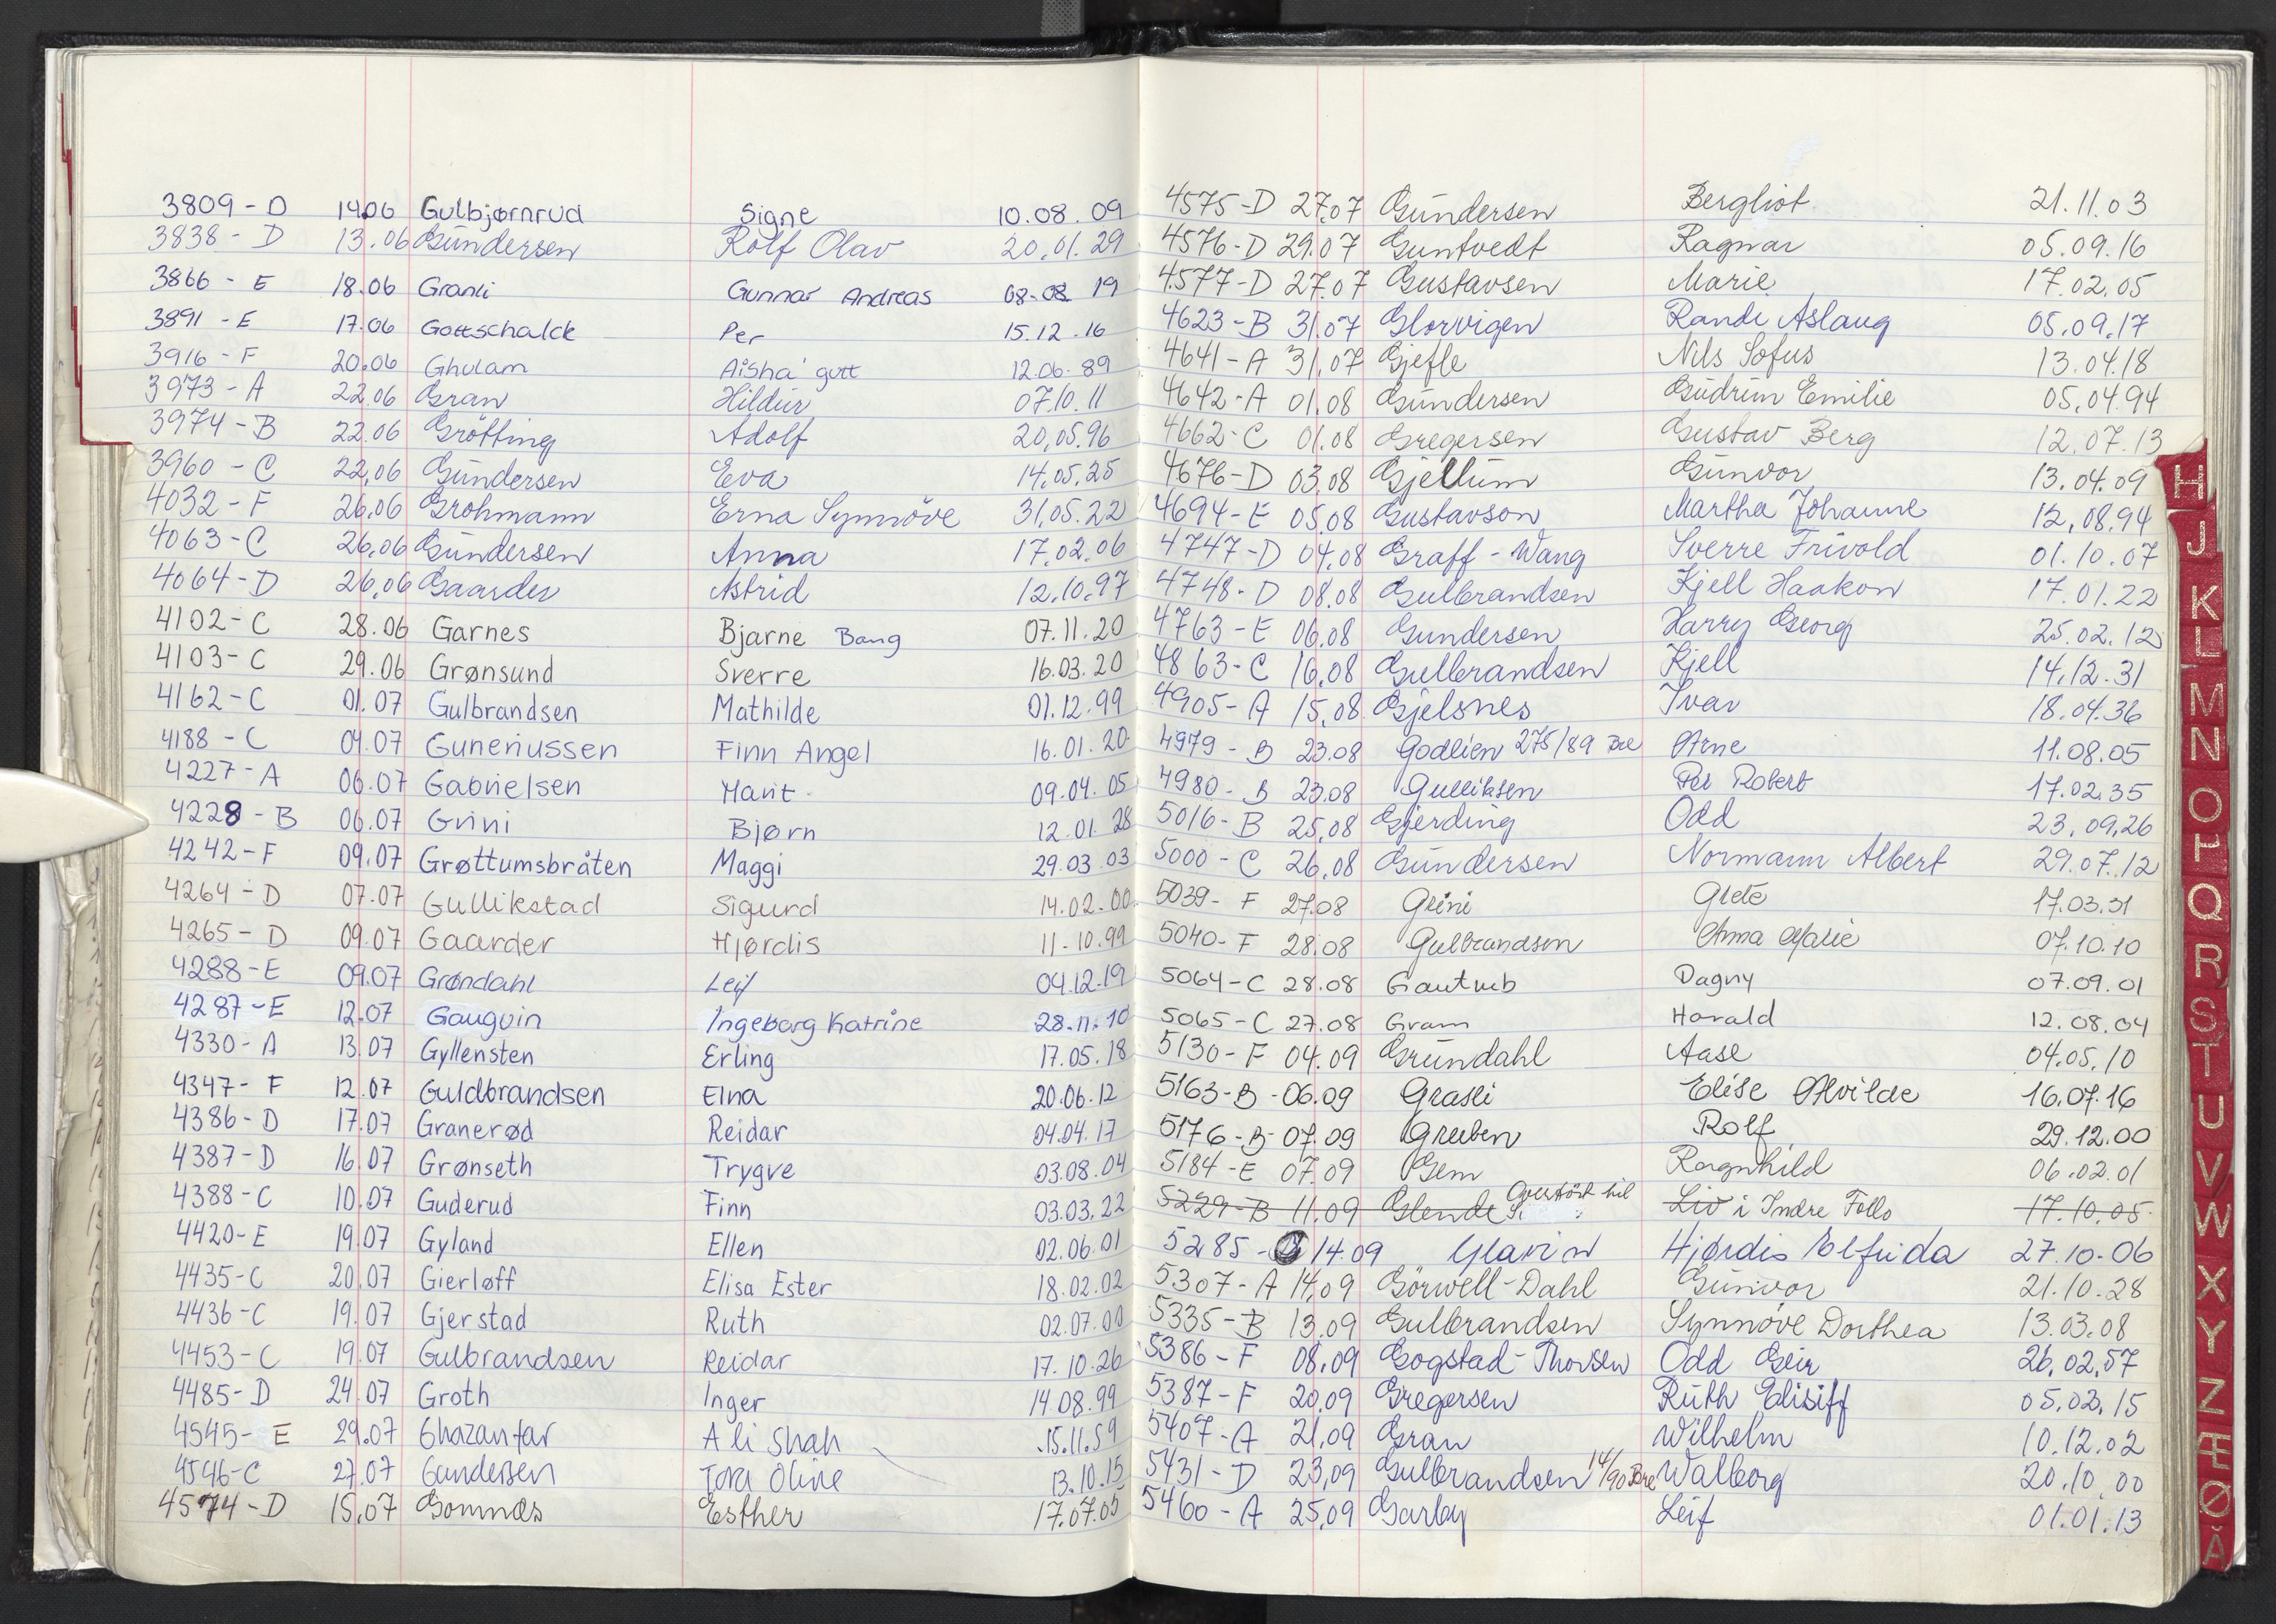 3809-D 14.06 Gulbjørnrud Signe 10.08.09
3838-D 13.06 Gundersen Rolf Olav 20.01.29
3866-E 18.06 Granli Gunnar Andreas 08-08 19
3891-E 17.06 Gottschalck Per 15.12.16
3916-F 20.06 Ghulam Aisha gutt 12.06.89
3973-A 22.06 Gran Hildur 07.10.11
3974-B 22.06 Grötting Adolf 20.05.96
3960-C 22.06 Gundersen Eva 14.05.25
4032-F 26.06 Grohmann Erna Synnöve 31.05.22
4063-C 26.06 Gundersen Anna 17.02.06
4064-D 26.06 Gaarder Astrid 12.10.97
4102-C 28.06 Garnes Bjarne Bang 07.11.20
4103-C 29.06 Grønsund Sverre 16.03.20
4162-C 01.07 Gulbrandsen Mathilde 01.12.99
4188-C 04.07 Guneriussen Finn Angel 16.01.20
4227-A 06.07 Gabrielsen Marit 09.04.05
4228-B 06.07 Grini Bjørn 12.01.28
4242-F 09.07 Grøttumsbråten Maggi 29.03.03
4264-D 07.07 Gullikstad Sigurd 14.02.00
4265-D 09.07 Gaarder Hjørdis 11-10.99
4288-E 09.07 Grøndahl Leif 04.12.19
4287-E 12.07 Gauguin Ingeborg Katrine 28.11.10
4330-A 13.07 Gyllensten Erling 17.05.18
4347-F 12.07 Guldbrandsen Elna 20.06.12
4386-D 17.07 Granerød Reidar 04.04.17
4387-D 16.07 Grønseth Trygve 03.08.04
4388-C 10.07 Guderud Finn 03.03.22
4420-E 19.07 Gyland Ellen 02.06.01
4435-C 20.07 Gierløff Elisa Ester 18.02.02
4436-C 19.07 Gjerstad Ruth 02.07.00
4453-C 19.07 Gulbrandsen Reidar 17.10.26
4485-D 24.07 Groth Inger 14.08.99
4545-E 29.07 Ghazanfar Ali Shah 15.11.59
4546-C 27.07 Gundersen Tora Oline 13.10.15
4574-D 15.07 Gomnæs Esther 17.07.05
4575-D 27.07 Gundersen Bergliot 21.11.03
4576-D 29.07 Guntvedt Ragnar 05.09.16
4577-D 27.07 Gustavsen Marie 17.02.05
4623-B 31.07 Glorvigen Randi Aslaug 05.09.17
4641-A 31.07 Gjefle Nils Sofus 13.04.18
4642-A 01.08 Gundersen Gudrun Emilie 05.04.94
4662-C 01.08 Gregersen Gustav Berg 12.07.13
4676-D 03.08 Gjellum Gunvor 13.04.09
4694-E 05.08 Gustavson Martha Johanne 12.08.94
4747-D 04.08 Graff-Wang Sverre Frivold 01.10.07
4748-D 08.08 Gulbrandsen Kjell Haakon 17.01.22
4763-E 06.08 Gundersen Harry Georg 25.02.12
4863-C 16.08 Gulbrandsen Kjell 14.12.31
4905-A 15.08 Gjelsnes Ivar 18.04.36
4979-B 23.08 Godlien 275/89 Arne 11.08.05
4980-B 23.08 Gulliksen Per Robert 17.02.35
5016-B 25.08 Gjerding Odd 23.09.26
5000-C 26.08 Gundersen Normann Albert 29.07.12
5039-F 27.08 Grini Grete 17.03.31
5040-F 28.08 Gulbrandsen Anna Marie 07.10.10
5064-C 28.08 Gautvib Dagny 07.09.01
5065-C 27.08 Gram Harald 12.08.04
5130-F 04.09 Grundahl Aase 04.05.10
5163-B-06.09 Grasli Elise Alvilde 16.07.16
5176-B-07.09 Gruben Rolf 29.12.00
5184-E 07.09 Gem Ragnhild 06.02.01
5229-B 11.09 Glende Overført til Liv i Indre Follo 17.10.05
5285- 14.09 Glavin Hjørdis Elfrida 27.10-06
5307-A 14.09 Görwell-Dahl Gunvor 21.10.28
5335-B 13.09 Gulbrandsen Synnöve Dorthea 13.03.08
5386-F 08.09 Gogstad-Thorsen Odd Geir 26.02.57
5387-F 20.09 Gregersen Ruth Elisiff 05.02.15
5407-A 21.09 Gran Wilhelm 10.12.02
5431-D 23.09 Gulbrandsen 14/90 Bre Walborg 20.10.00
5460-A 25.09 Garby Leif 01.01.13
H
J
K
L
M
N
O
P
Q
R
S
T
U
V
W
X
Y
Z
Æ
Ø
Å